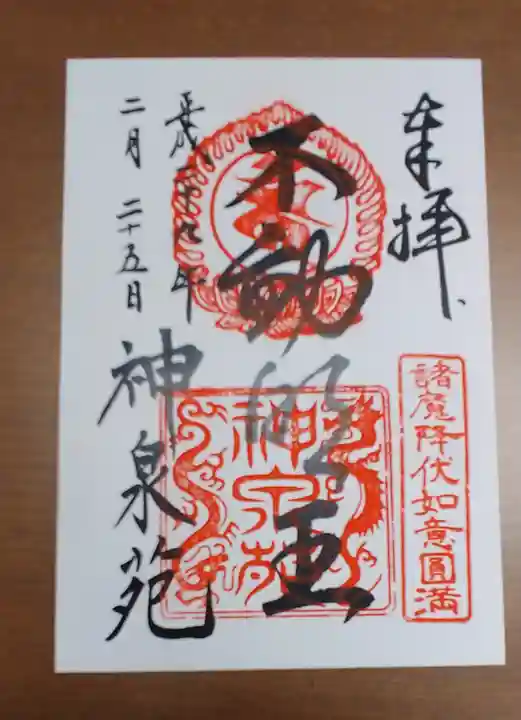 奉拝
諸魔降伏如意圓満
不動明王
神泉苑
平成二十九年
二月二十五日
神泉苑